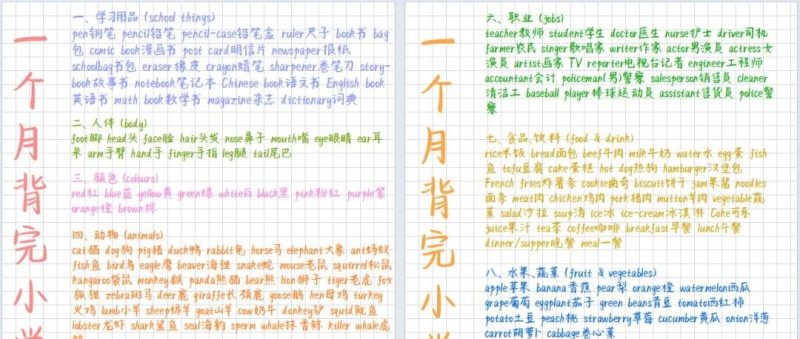 一个月背完小学
一、学习用品 (school things)
pen钢笔 pencil铅笔 pencil-case铅笔盒 ruler尺子 book书 bag
包 comic book漫画书 post card明信片 newspaper报纸
schoolbag书包 eraser橡皮 crayon蜡笔 sharpener卷笔刀 story-
book故事书 notebook笔记本 Chinese book语文书 English book
英语书 math book数学书 magazine杂志 dictionary词典
二、人体 (body)
foot脚 head头 face脸 hair头发 nose鼻子 mouth嘴 eye眼睛 ear耳
朵 arm手臂 hand手 finger手指 leg腿 tail尾巴
三、颜色 (colours)
red红 blue蓝 yellow黄 green绿 white白 black黑 pink粉红 purple紫
orange橙 brown棕
四、动物 (animals)
cat猫 dog狗 pig猪 duck鸭 rabbit兔 horse马 elephant大象 ant蚂蚁
fish鱼 bird鸟 eagle鹰 beaver海狸 snake蛇 mouse老鼠 squirrel松鼠
kangaroo袋鼠 monkey猴 panda熊猫 bear熊 lion狮子 tiger老虎 fox
狐狸 zebra斑马 deer鹿 giraffe长颈鹿 goose鹅 hen母鸡 turkey
火鸡 lamb小羊 sheep绵羊 goat山羊 cow奶牛 donkey驴 squid鱿鱼
lobster龙虾 shark鲨鱼 seal海豹 sperm whale抹香鲸 killer whale虎
一个月背完小学
六、职业 (jobs)
teacher教师 student学生 doctor医生 nurse护士 driver司机
farmer农民 singer歌唱家 writer作家 actor男演员 actress女
演员 artist画家 TV reporter电视台记者 engineer工程师
accountant会计 policeman(男)警察 salesperson销售员 cleaner
清洁工 baseball player棒球运动员 assistant售货员 police警
察
七、食品、饮料 (food & drink)
rice米饭 bread面包 beef牛肉 milk牛奶 water水 egg蛋 fish
鱼 tofu豆腐 cake蛋糕 hot dog热狗 hamburger汉堡包
French fries炸薯条 cookie曲奇 biscuit饼干 jam果酱 noodles
面条 meat肉 chicken鸡肉 pork猪肉 mutton羊肉 vegetable蔬
菜 salad沙拉 soup汤 ice冰 ice-cream冰淇淋 Coke可乐
juice果汁 tea茶 coffee咖啡 breakfast早餐 lunch午餐
dinner/supper晚餐 meal一餐
八、水果、蔬菜 (fruit & vegetables)
apple苹果 banana香蕉 pear梨 orange橙 watermelon西瓜
grape葡萄 eggplant茄子 green beans青豆 tomato西红柿
potato土豆 peach桃 strawberry草莓 cucumber黄瓜 onion洋葱
carrot胡萝卜 cabbage卷心菜